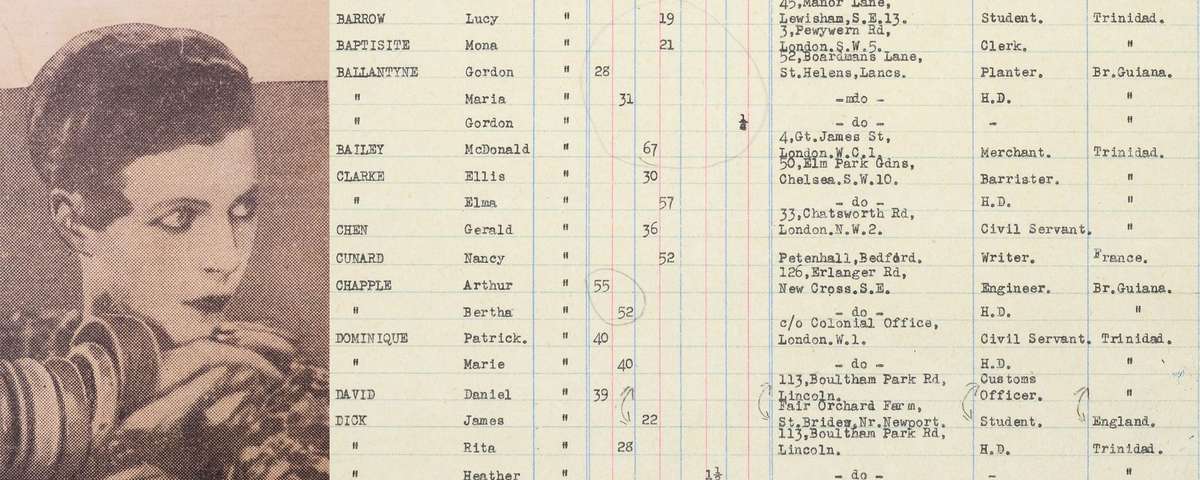 45,Manor Lane,
BARROW Lucy " 19 Lewisham,S.E.13. Student. Trinidad.
3,Pewywern Rd,
BAPTISITE Mona " 21 London.S.W.5. Clerk. "
52,Boardmans Lane,
BALLANTYNE Gordon " 28 St.Helens,Lancs. Planter. Br.Guiana.
" Maria " 31 - do - H.D. "
" Gordon " - do - - "
4,Gt.James St,
BAILEY McDonald " 67 London.W.C.1. Merchant. Trinidad.
50,Elm Park Gdns,
CLARKE Ellis " 30 Chelsea.S.W.10. Barrister. "
" Elma " 57 - do - H.D. "
33,Chatsworth Rd,
CHEN Gerald " 36 London.N.W.2. Civil Servant. "
CUNARD Nancy " 52 Petenhall,Bedford. Writer. France.
126,Erlanger Rd,
CHAPPLE Arthur " 55 New Cross.S.E. Engineer. Br.Guiana.
" Bertha " 52 - do - H.D. "
c/o Colonial Office,
DOMINIQUE Patrick. " 40 London.W.1. Civil Servant. Trinidad.
" Marie " 40 - do - H.D. "
113,Boultham Park Rd, Customs
DAVID Daniel " 39 Lincoln. Officer. "
Fair Orchard Farm,
DICK James " 22 St.Brides,Nr.Newport. Student. England.
113,Boultham Park Rd,
" Rita " 28 Lincoln. H.D. Trinidad.
" Heather " 1½ - do - - "